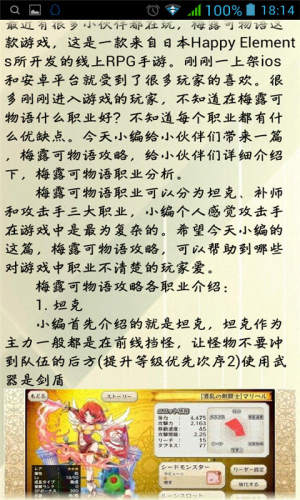 100% 18:14
最近有很多小伙伴都在玩，梅露可物语这
款游戏，这是一款来自日本Happy Element
s所开发的线上RPG手游。刚刚一上架ios
和安卓平台就受到了很多玩家的喜欢。很
多刚刚进入游戏的玩家，不知道在梅露可
物语什么职业好？不知道每个职业都有什
么优缺点。今天小编给小伙伴们带来一篇
，梅露可物语攻略，给小伙伴们详细介绍
下，梅露可物语职业分析。
梅露可物语职业可以分为坦克、补师
和攻击手三大职业，小编个人感觉攻击手
在游戏中是最为复杂的。希望今天小编的
这篇，梅露可物语攻略，可以帮助到哪些
对游戏中职业不清楚的玩家爱。
梅露可物语攻略各职业介绍：
1. 坦克
小编首先介绍的就是坦克，坦克作为
主力一般都是在前线挡怪，让怪物不要冲
到队伍的后方(提升等级优先次序2)使用武
器是剑盾
もどる
ストーリー
【紅乱の剣騎士】マリベル
4,475
2,163
シードモンスター
リーダー設定
強化する